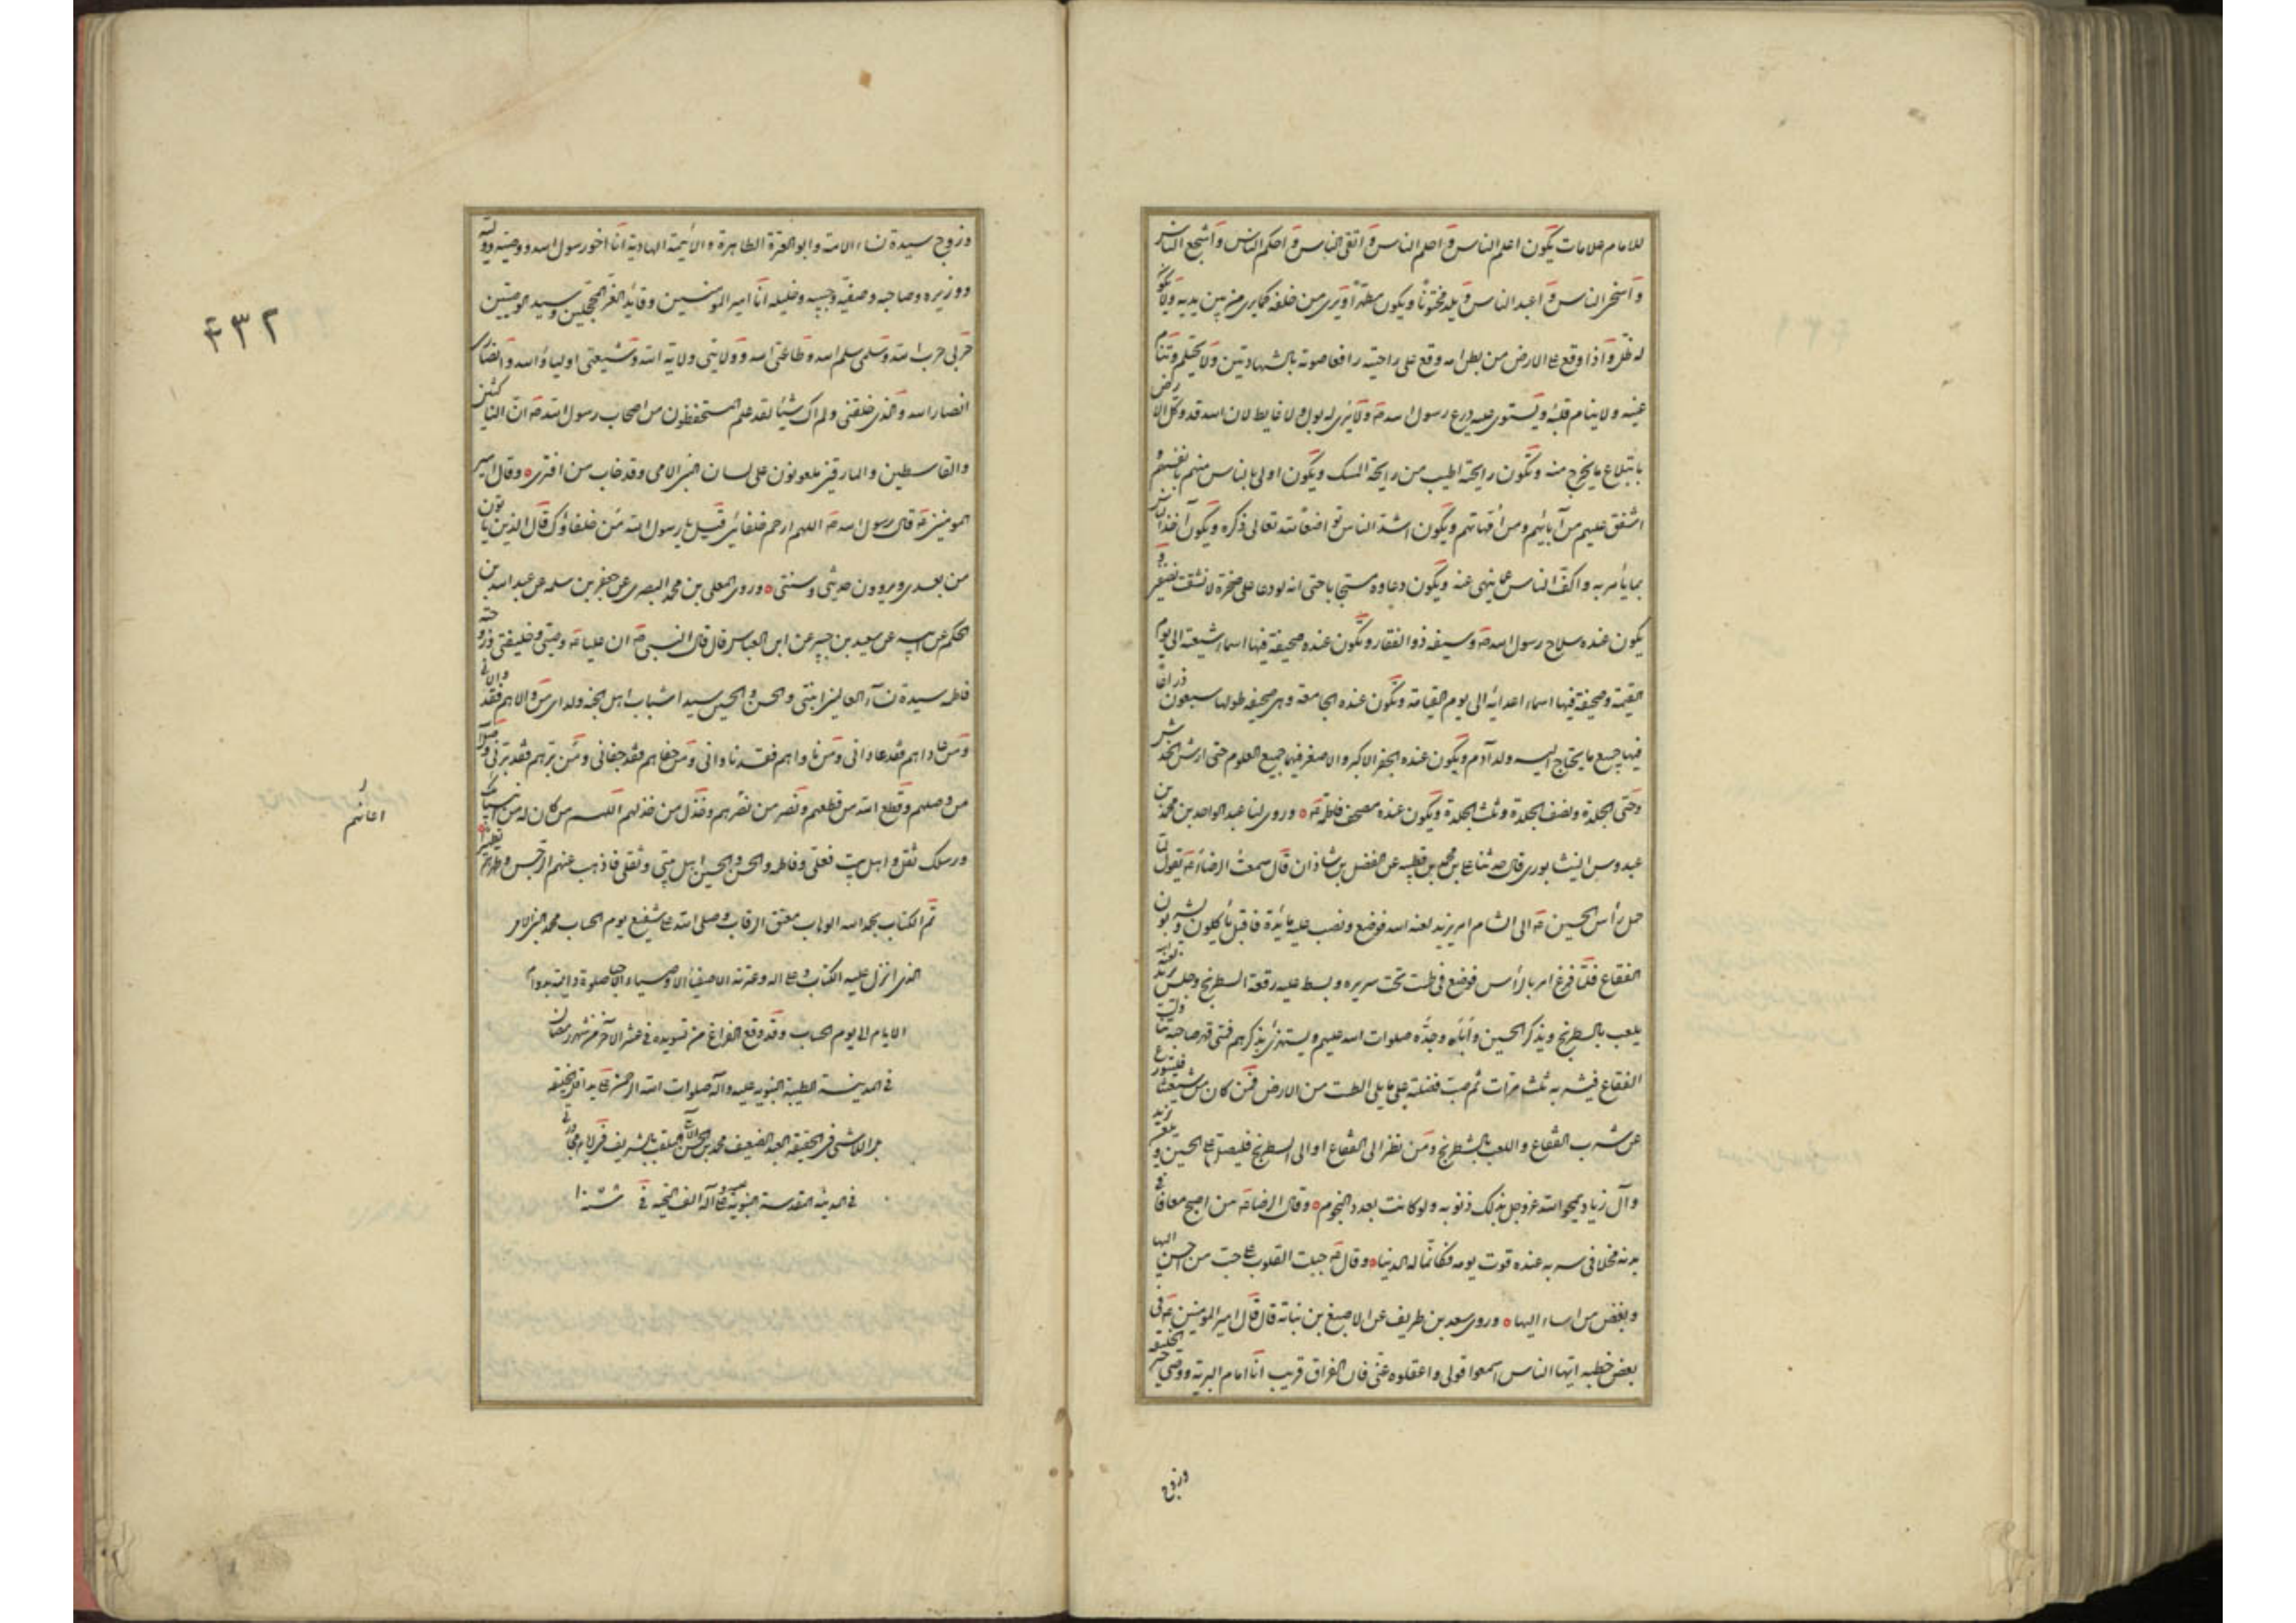 للامام علامات يكون اعلم الناس و احلم الناس و اتقى الناس و احكم الناس و اشجع الناس
و اسخى الناس و اعبد الناس و يلد مختونا و يكون مطهرا و يرى من خلفه كما يرى من بين يديه و لا يكون
له ظل و اذا وقع على الارض من بطن امه وقع على راحتيه رافعا صوته بالشهادتين و لا يحتلم و تنام
عينه و لا ينام قلبه و يستوى عليه درع رسول الله ص و لا يرى له بول و لا غايط لان الله قد وكل الارض
بابتلاع ما يخرج منه و تكون رايحته اطيب من رايحة المسك و يكون اولى بالناس منهم بانفسهم و
اشفق عليهم من آبائهم و من امهاتهم و يكون اشد الناس تواضعا لله تعالى ذكره و يكون آخذ الناس
بما يأمر به و اكف الناس عما ينهى عنه و يكون دعاوه مستجابا حتى انه لو دعا على صخرة لانشقت نصفين و
يكون عنده سلاح رسول الله ص و سيفه ذو الفقار و تكون عنده صحيفة فيها اسماء شيعته الى يوم
القيمة و صحيفة فيها اسماء اعدائه الى يوم القيامة و تكون عنده الجامعة و هى صحيفه طولها سبعون ذراعا
فيها جميع ما يحتاج اليه ولد آدم و يكون عنده الجفر الاكبر و الاصغر فيهما جميع العلوم حتى ارش الخدش
و حتى الجلدة و نصف الجلدة و ثلث الجلدة و يكون عنده مصحف فاطمة ع و روى لنا عبد الواحد بن محمد بن
عبدوس النيشابورى قال حدثنا على بن محمد بن قتيبه عن الفضل بن شاذان قال سمعت الرضا ع يقول لما
حمل رأس الحسين ع الى الشام امر يزيد لعنه الله فوضع و نصب عليه مائدة فاقبل يأكلون و يشربون
الفقاع فلما فرغ امر بالرأس فوضع فى طست تحت سريره و بسط عليه رقعة الشطرنج و جلس يزيد لعنه الله
يلعب بالشطرنج و يذكر الحسين و اباه و جده صلوات الله عليهم و يستهزئ بذكرهم فمتى قمر صاحبه تناول
الفقاع فيشربه ثلث مرات ثم صب فضلته على ما يلى الطست من الارض فمن كان من شيعتنا فليتورع
عن شرب الفقاع و اللعب بالشطرنج و من نظر الى الفقاع او الى الشطرنج فليصل على الحسين و يلعن يزيد
و آل زياد يمحو الله عز و جل بذلك ذنوبه و لو كانت بعدد النجوم و قال الرضا ع من اصبح معافا فى
بدنه مخلا فى سربه عنده قوت يومه فكانما له الدنيا و قال ع جبلت القلوب على حب من احسن اليها
و بغض من اساء اليها و روى سعد بن طريف عن الاصبغ بن نباته قال قال امير المومنين ع فى
بعض خطبه ايها الناس اسمعوا قولى و اعقلوه عنى فان الفراق قريب انا امام البرية و وصى خير الخليقة
وزوج
٤٣٢
و زوج سيدة نساء الامة و ابو العترة الطاهرة و الائمة الهادية انا اخو رسول الله و وصيه و وليه
و وزيره و صاحبه و صفيه و حبيبه و خليله انا امير المومنين و قائد الغر المحجلين و سيد الوصيين
حربى حرب الله و سلمى سلم الله و طاعتى طاعة الله و ولايتى ولاية الله و شيعتى اولياء الله و انصارى
انصار الله و الذى خلقنى و لم اك شيئا لقد علم المستحفظون من اصحاب رسول الله ص ان الناكثين
و القاسطين و المارقين ملعونون على لسان النبى الامى و قد خاب من افترى و قال امير
المومنين ع قال رسول الله ص اللهم ارحم خلفائى قيل يا رسول الله من خلفاؤك قال الذين ياتون
من بعدى و يروون حديثى و سنتى و روى المعلى بن محمد البصرى عن جعفر بن سلمه عن عبد الله بن
الحكم عن ابيه عن سعيد بن جبير عن ابن العباس قال قال النبى ص ان عليا ع وصيى و خليفتى و زوجته
فاطمه سيدة نساء العالمين ابنتى و الحسن و الحسين سيدا شباب اهل الجنه ولداى من والاهم فقد والانى
و من عاداهم فقد عادانى و من ناواهم فقد ناوانى و من جفاهم فقد جفانى و من برهم فقد برنى وصل الله
من وصلهم و قطع الله من قطعهم و نصر من نصرهم و خذل من خذلهم اللهم من كان له من انبيائك
اعانهم
و رسلك ثقل و اهل بيت فعلى و فاطمه و الحسن و الحسين اهل بيتى و ثقلى فاذهب عنهم الرجس و طهرهم تطهيرا
تم الكتاب بحمد الله الوهاب معتق الرقاب و صلى الله على شفيع يوم الحساب محمد النبى
الذى انزل عليه الكتاب و على اله و عترته الاصفياء الاوصياء صلوة دايمة بدوام
الايام الى يوم الحساب و قد وقع الفراغ من تسويده فى عشر الآخر من شهر رمضان
فى المدينة الطيبة النبويه عليه و آله صلوات الله الرحمن على يد اقل الخليقه
بل اللاشى فى الحقيقه العبد الضعيف محمد بن الحسن الملقب بالشريف فى
فى المدينه المقدسة النبويه و آله الف التحيه فى سنة